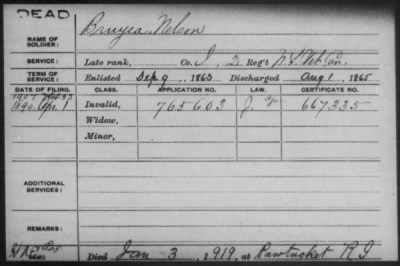 DEAD
NAME OF SOLDIER: Bruyea, Nelson
SERVICE: Late rank, Co. I, 2 Reg't
TERM OF SERVICE: Enlisted Sep 9, 1863 Discharged Aug 1, 1865
DATE OF FILING. CLASS. APPLICATION NO. LAW. CERTIFICATE NO.
1890 Apr. 1 Invalid, 765603 667335
Widow,
Minor,
ADDITIONAL SERVICES:
REMARKS:
Died Jan 3, 1919, at Pawtucket R I